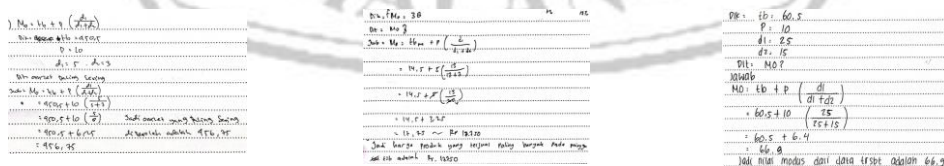 ) Mo = tb + P (d1/d1+d2)
tb = 950,5
P = 10
d1 = 5 . d2 = 3
Dit: omset paling sering
Jwb: Mo = tb + P (d1/d1+d2)
= 950,5 + 10 (5/5+3)
= 950,5 + 10 (5/8) Jadi omset yang paling sering
= 950,5 + 6,25 diperoleh adalah 956,75
= 956,75
Dik. fMo = 38
Dit = Mo?
Jwb = Mo = tb + P
= 14,5 + 5 (13/13+7)
= 14,5 + 5 (13/20)
= 14,5 + 3,25
= 17,75 ~ Rp
Jadi harga produk yang terjual paling banyak pada minggu
adalah Rp.
Dik: tb: 60.5
P: 10
d1: 25
d2: 15
Dit: MO?
Jawab
MO: tb + p (d1/d1+d2)
= 60.5 + 10 (25/25+15)
= 60.5 + 6.4
= 66.9
Jadi nilai modus dari data trsbt adalah 66.9